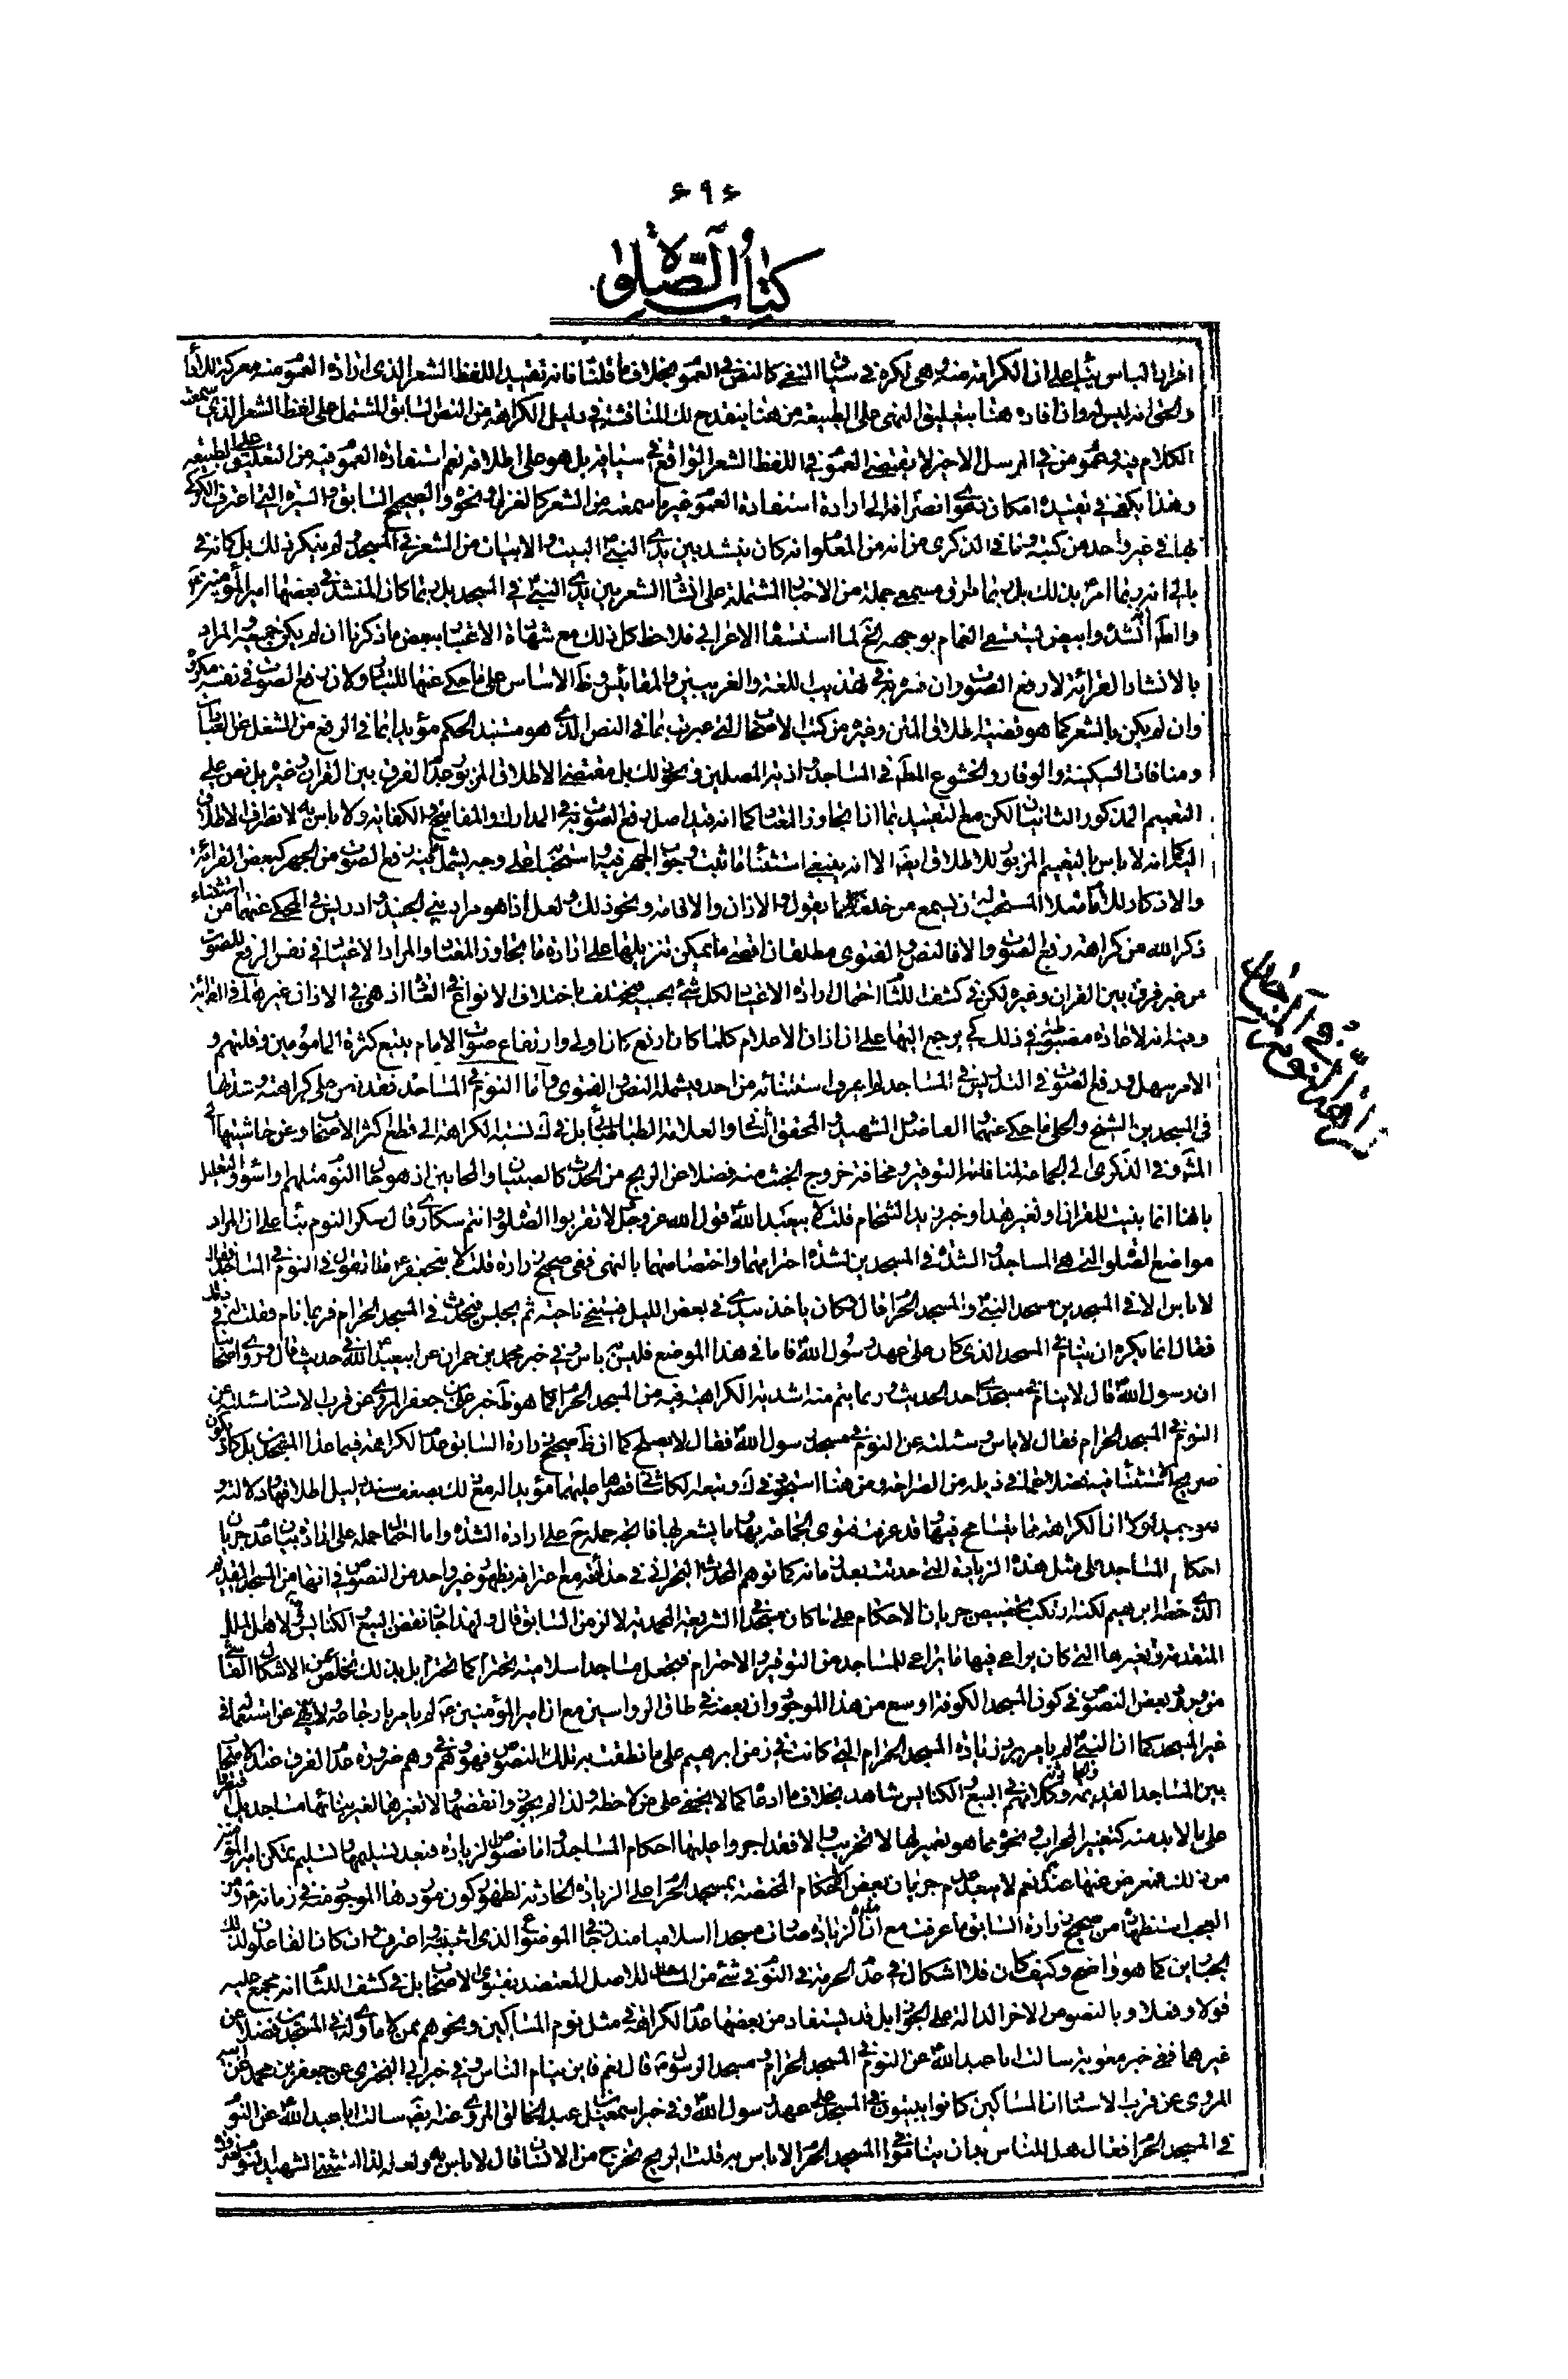 ۶۹۶
كتاب الصلوة
اخر بالباس بناء على ان الكراهة منه وهي نكرة في سياق النفي كالنص في العموم بخلاف ما قلنا فانه تقييد اللفظ الشعر الذي ارادة العموم منه
والحق انه ليس او وان افاده هنا بتعليق النهي على الطبيعة من هنا ينقدح لك المناقشة في دليل الكراهة من النص السابق المشتمل على لفظ الشعر الذي سمعت
الكلام فيه وعموم من في المرسل الاخير لا يقتضي العموم في اللفظ الشعر الواقع في سياقه بل هو على اطلاقه نعم استفادة العموم فيه من التعليق على الطبيعة
وهذا يكفي في تقييده امكان دعوى انصرافه الى ارادة استفادة العموم غير ما سمعته من الشعر كالغزل ونحوه والصحيح السابق والسيرة التي اعترف
بها في غير واحد من كتبه وما في الذكرى من انه من المعلوم انه كان ينشد بين يدي النبي البيت والابيات من الشعر في المسجد ولم ينكر ذلك بل كانه في
بالي انه ربما امر بذلك بل ربما طرق سمعي جملة من الاخبار المشتملة على انشاد الشعر بين يدي النبي في المسجد بل ربما كان المنشد في بعضها امير المؤمنين
وانشد وابيض يستسقى الغمام بوجهه الخ لما استسقا الاعرابي فلاحظ كل ذلك مع شهادة الاعتبار ببعض ما ذكرنا ان لم يكن جميعه المراد
بالانشاد القرائة لا رفع الصوت وان فسر به في تهذيب اللغة والغريبين والمقاييس وظ الاساس على ما حكي عنها للتبادر ولان رفع الصوت في نفسه مكروه
وان لم يكن بالشعر كما هو قضية اطلاق المتن وغيره من كتب الاصحاب التي عبرت بما في النص الذي هو مستند الحكم مؤيدا بما في الرفع من الشغل عن العبادات
ومنافات السكينة والوقار والخشوع المط في المساجد واذية المصلين ونحو ذلك بل مقتضى الاطلاق المزبور عدم الفرق بين القران وغيره بل نص على
التعميم المذكور الثانيان لكن مع التقييد بما اذا تجاوز المعتاد كما انه قيد اصل رفع الصوت به في المدارك والمفاتيح والكفاية ولا باس به لانصراف الاطلاق
اليه كما انه لا باس بالتعميم المزبور للاطلاق ايضا الا انه ينبغي استثناء ما ثبت وجوب الجهر فيه او استحبابه على وجه يشمل رفع الصوت من الجهر كبعض القرائة
والاذكار للامام مثلا المستحب له ان يسمع من خلفه كلما يقول والاذان والاقامة ونحو ذلك ولعل هذا هو مراد بني الجنيد وادريس في المحكي عنهما من استثناء
ذكر الله من كراهة رفع الصوت والا فالنص والفتوى مطلقان اقصى ما يمكن تنزيلها على ارادة ما تجاوز المعتاد والمراد الاعتياد في نفس الرفع للصوت
من غير فرق بين القران وغيره لكن في كشف اللثام احتمال ارادة الاعتياد لكل شئ بحسبه فيختلف باختلاف الانواع في العادة اذ هي في الاذان غيرها في القرائة
وفيه انه لا عادة مضبوطة في ذلك كي يرجع اليها على ان اذان الاعلام كلما كان ارفع كان اولى وارتفاع صوت الامام يتبع كثرة المامومين وقلتهم و
الامر سهل ورفع الصوت في التدريس في المساجد لم اعرف استثنائه من احد ويشمله النص والفتوى واما النوم في المساجد فقد نص على كراهته وشدتها
في المسجدين الشيخ والحلي فيما حكي عنهما الفاضل والشهيد والمحقق الثاني والعلامة الطباطبائي بل في ك نسبة الكراهة الى قطع اكثر الاصحاب وعن حاشيتها
في الذكرى الى الجماعة لمنافاته التوقير ومخافة خروج الخبث منه فضلا عن الريح من الحدث كالصبيان والمجانين اذ هو حال النوم مثلهم واسوء والتعليل
بالهنا انما بنيت للقران او لغير هذا وخبر زيد الشحام قلت لابيعبد الله قول الله عز وجل لا تقربوا الصلوة وانتم سكارى قال سكر النوم بناء على ان المراد
مواضع الصلوة التي هي المساجد والشدة في المسجدين لشدة احترامهما واختصاصهما بالنهي ففي صحيح زرارة قلت لابيجعفر ما تقول في النوم في المساجد فقال
لا باس الا في المسجدين مسجد النبي والمسجد الحرام قال وكان ياخذ بيدي في بعض الليل فيتنحى ناحية ثم يجلس فيتحدث في المسجد الحرام فربما نام فقلت له في ذلك
فقال انما يكره ان ينام في المسجد الذي كان على عهد رسول الله فاما في هذا الموضع فليس به باس وفي خبر محمد بن حمران عن ابيعبد الله في حديث قال وروى اصحابنا
ان رسول الله قال لا ينام في مسجدي احد الحديث وربما يتم منه اشدية الكراهة فيه من المسجد الحرام كما هو ظ خبر علي بن جعفر المروي عن قرب الاسناد سئلته عن
النوم في المسجد الحرام فقال لا باس وسئلته عن النوم في مسجد رسول الله فقال لا يصلح كما ان ظ صحيح زرارة السابق عدم الكراهة فيما عدا المسجدين بل كاد يكون
صريح الاستثناء فيه فضلا عما في ذيله من الصراحة ومن هنا استجوده في ك وتبعه الكاشاني قصرها عليهما مؤيدا له مع ذلك بضعف سند دليل اطلاقها ودلالته و
هو جيد لولا ان الكراهة مما يتسامح فيها وقد عرفت فتوى الجماعة بها وما يشعر بها فالمتجه حمله ح على ارادة الشدة واما احتمال حمله على ارادة بيان عدم جريان
احكام المساجد على مثل هذه الزيادة التي حدثت بعد زمانه كما توهمه المحدث البحراني في حدائقه مع اعترافه بظهور غير واحد من النصوص في انها من المسجد القديم
الذي خطه ابرهيم لكنه ارتكب تخصيص جريان الاحكام على ما كان مسجدا في الشريعة المحمدية لا لزمن السابق قال ولهذا جاز نقض البيع والكنايس لاهل الملل
المتقدمة وتغيرها التي كان يراعى فيها ما يراعى للمساجد من التوقير والاحترام فتجعل مساجد اسلامية تحترم كما تحترم بل بذلك يتخلص عن الاشكال
من ورود بعض النصوص في كون المسجد الكوفة اوسع من هذا الموجود وان بعضه في طاق الرواسين مع ان امير المؤمنين لم يامر بارجاعه
غير المسجد كما ان النبي لم يامر بزيادة المسجد الحرام التي كانت في زمن ابرهيم على ما نطقت به تلك النصوص فهو وهم في وهم ضرورة عدم الفرق عند الاصحاب
بين المساجد القديمة وكلامهم في البيع والكنايس شاهد بخلاف ما ادعاه كما لا يخفى على من لاحظه ولذا لم يجوزوا نقضها ولا تغيرها لغير بنائها مساجد بل اقتصروا
على ما لا بد منه كتغيير المحراب ونحوه مما هو تعمير لها لا تخريب والا فقد اجروا عليها احكام المساجد واما نصوص الزيادة فبعد تسليمها وتسليم تمكن امير المؤمنين
من ذلك نعم لا يبعد عدم جريان بعض الاحكام المختصة بمسجد الحرام على الزيادة الحادثة لظهور كون موردها الموجود منه في زمانه ومن
العجب استظهاره من صحيح زرارة السابق ما عرفت مع ان الزيادة صارت مسجدا اسلاميا مندرجا في الموضوع الذي اثبته واعترف به وان كان الفاعلون لذلك
الجبابرة كما هو واضح وكيف كان فلا اشكال في عدم الحرمة في النوم في شئ من المساجد للاصل المعتضد بفتوى الاصحاب بل في كشف اللثام انه مجمع عليه
قولا وفعلا وبالنصوص الاخر الدالة على الجواز بل قد يستفاد من بعضها عدم الكراهة في مثل نوم المساكين ونحوهم ممن لا ماوى له في المسجدين فضلا عن
غيرهما ففي خبر معوية سالت ابا عبد الله عن النوم في المسجد الحرام ومسجد الرسول قال نعم فاين ينام الناس وفي خبر ابي البختري عن جعفر بن محمد عن ابيه
المروي عن قرب الاسناد ان المساكين كانوا يبيتون في المسجد على عهد رسول الله وفي خبر اسمعيل بن عبد الخالق المروي عنه ايضا سالت ابا عبد الله عن النوم
في المسجد الحرام فقال هل للناس بد ان يناموا في المسجد الحرام لا باس به قلت الريح تخرج من الانسان قال لا باس به ولعله لذا استثنى الشهيد